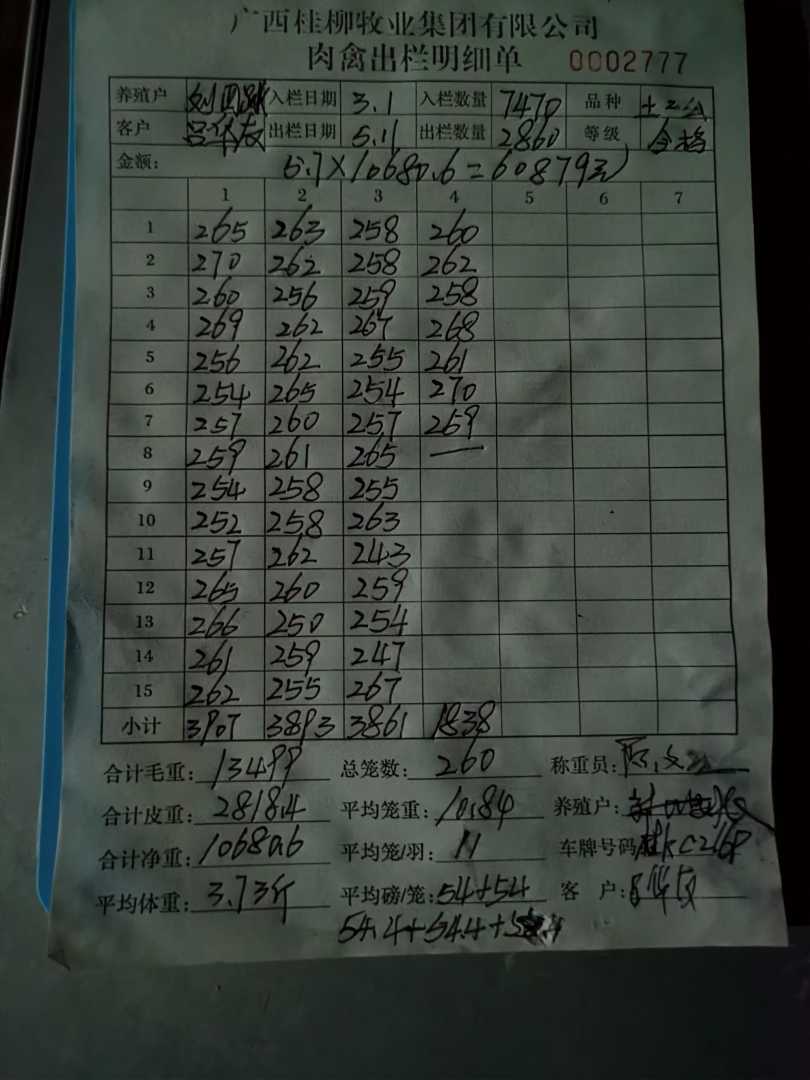 广西桂柳牧业集团有限公司
肉禽出栏明细单 0002777
养殖户 入栏日期 3.1 入栏数量 7470 品种 土二公
客户 吕华友 出栏日期 5.11 出栏数量 2860 等级 合格
金额: 5.7×10680.6=60879元
1 2 3 4 5 6 7
1 265 263 258 260
2 270 262 258 262
3 260 256 259 258
4 269 262 267 268
5 256 262 255 261
6 254 265 254 270
7 257 260 257 259
8 259 261 265 —
9 254 258 255
10 252 258 263
11 257 262 243
12 265 260 259
13 266 250 254
14 261 259 247
15 262 255 267
小计 3907 3893 3861 1838
合计毛重: 13499 总笼数: 260 称重员:
合计皮重: 2818.4 平均笼重: 10.84 养殖户:
合计净重: 10680.6 平均笼/羽: 11 车牌号码
平均体重: 3.73斤 平均磅/笼: 54+54 客户: 吕华友
54.4+54.4+